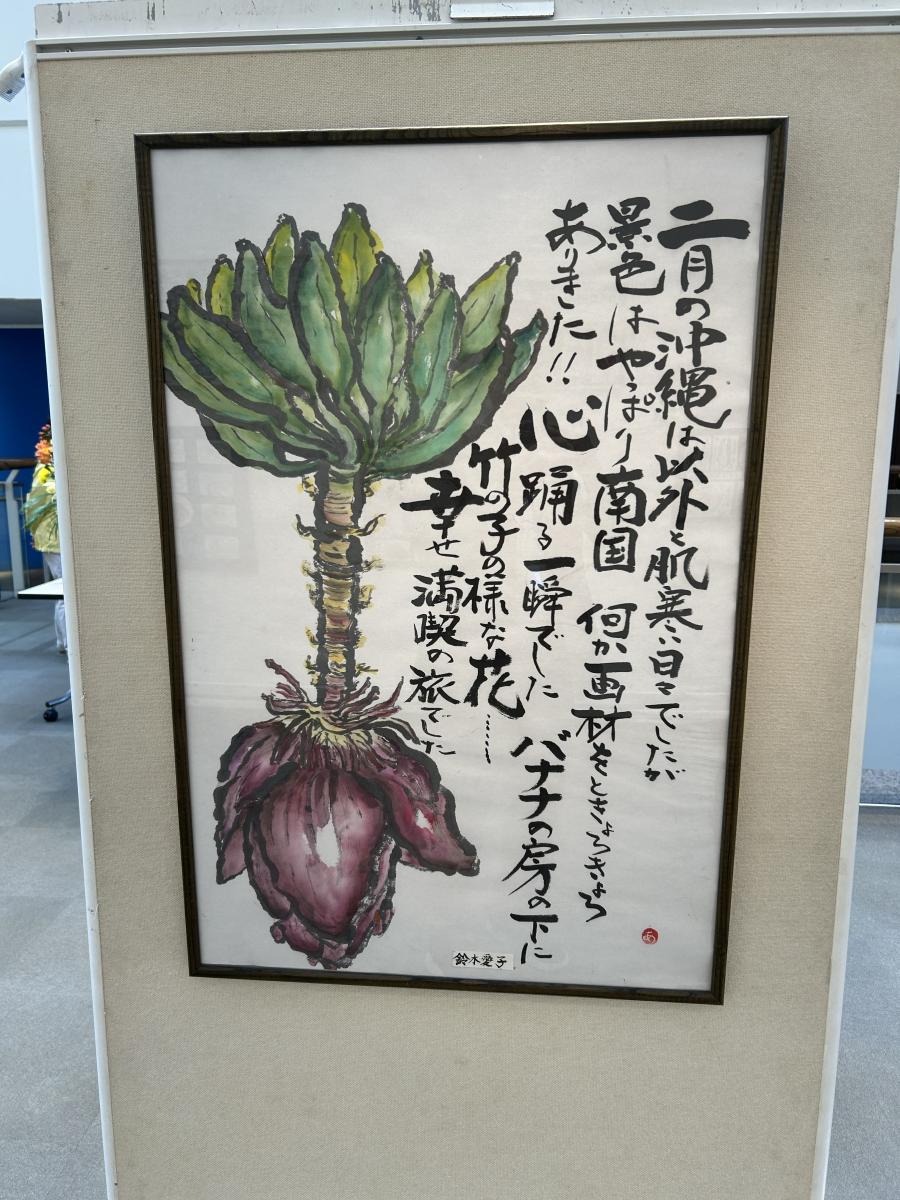 二月の沖縄は以外と肌寒い日々でしたが
景色はやっぱり南国 何か画材をときょろきょろ
ありました!!
心踊る一瞬でした バナナの房の下に
竹の子の様な花……
幸せ満喫の旅でした
あ
鈴木愛子